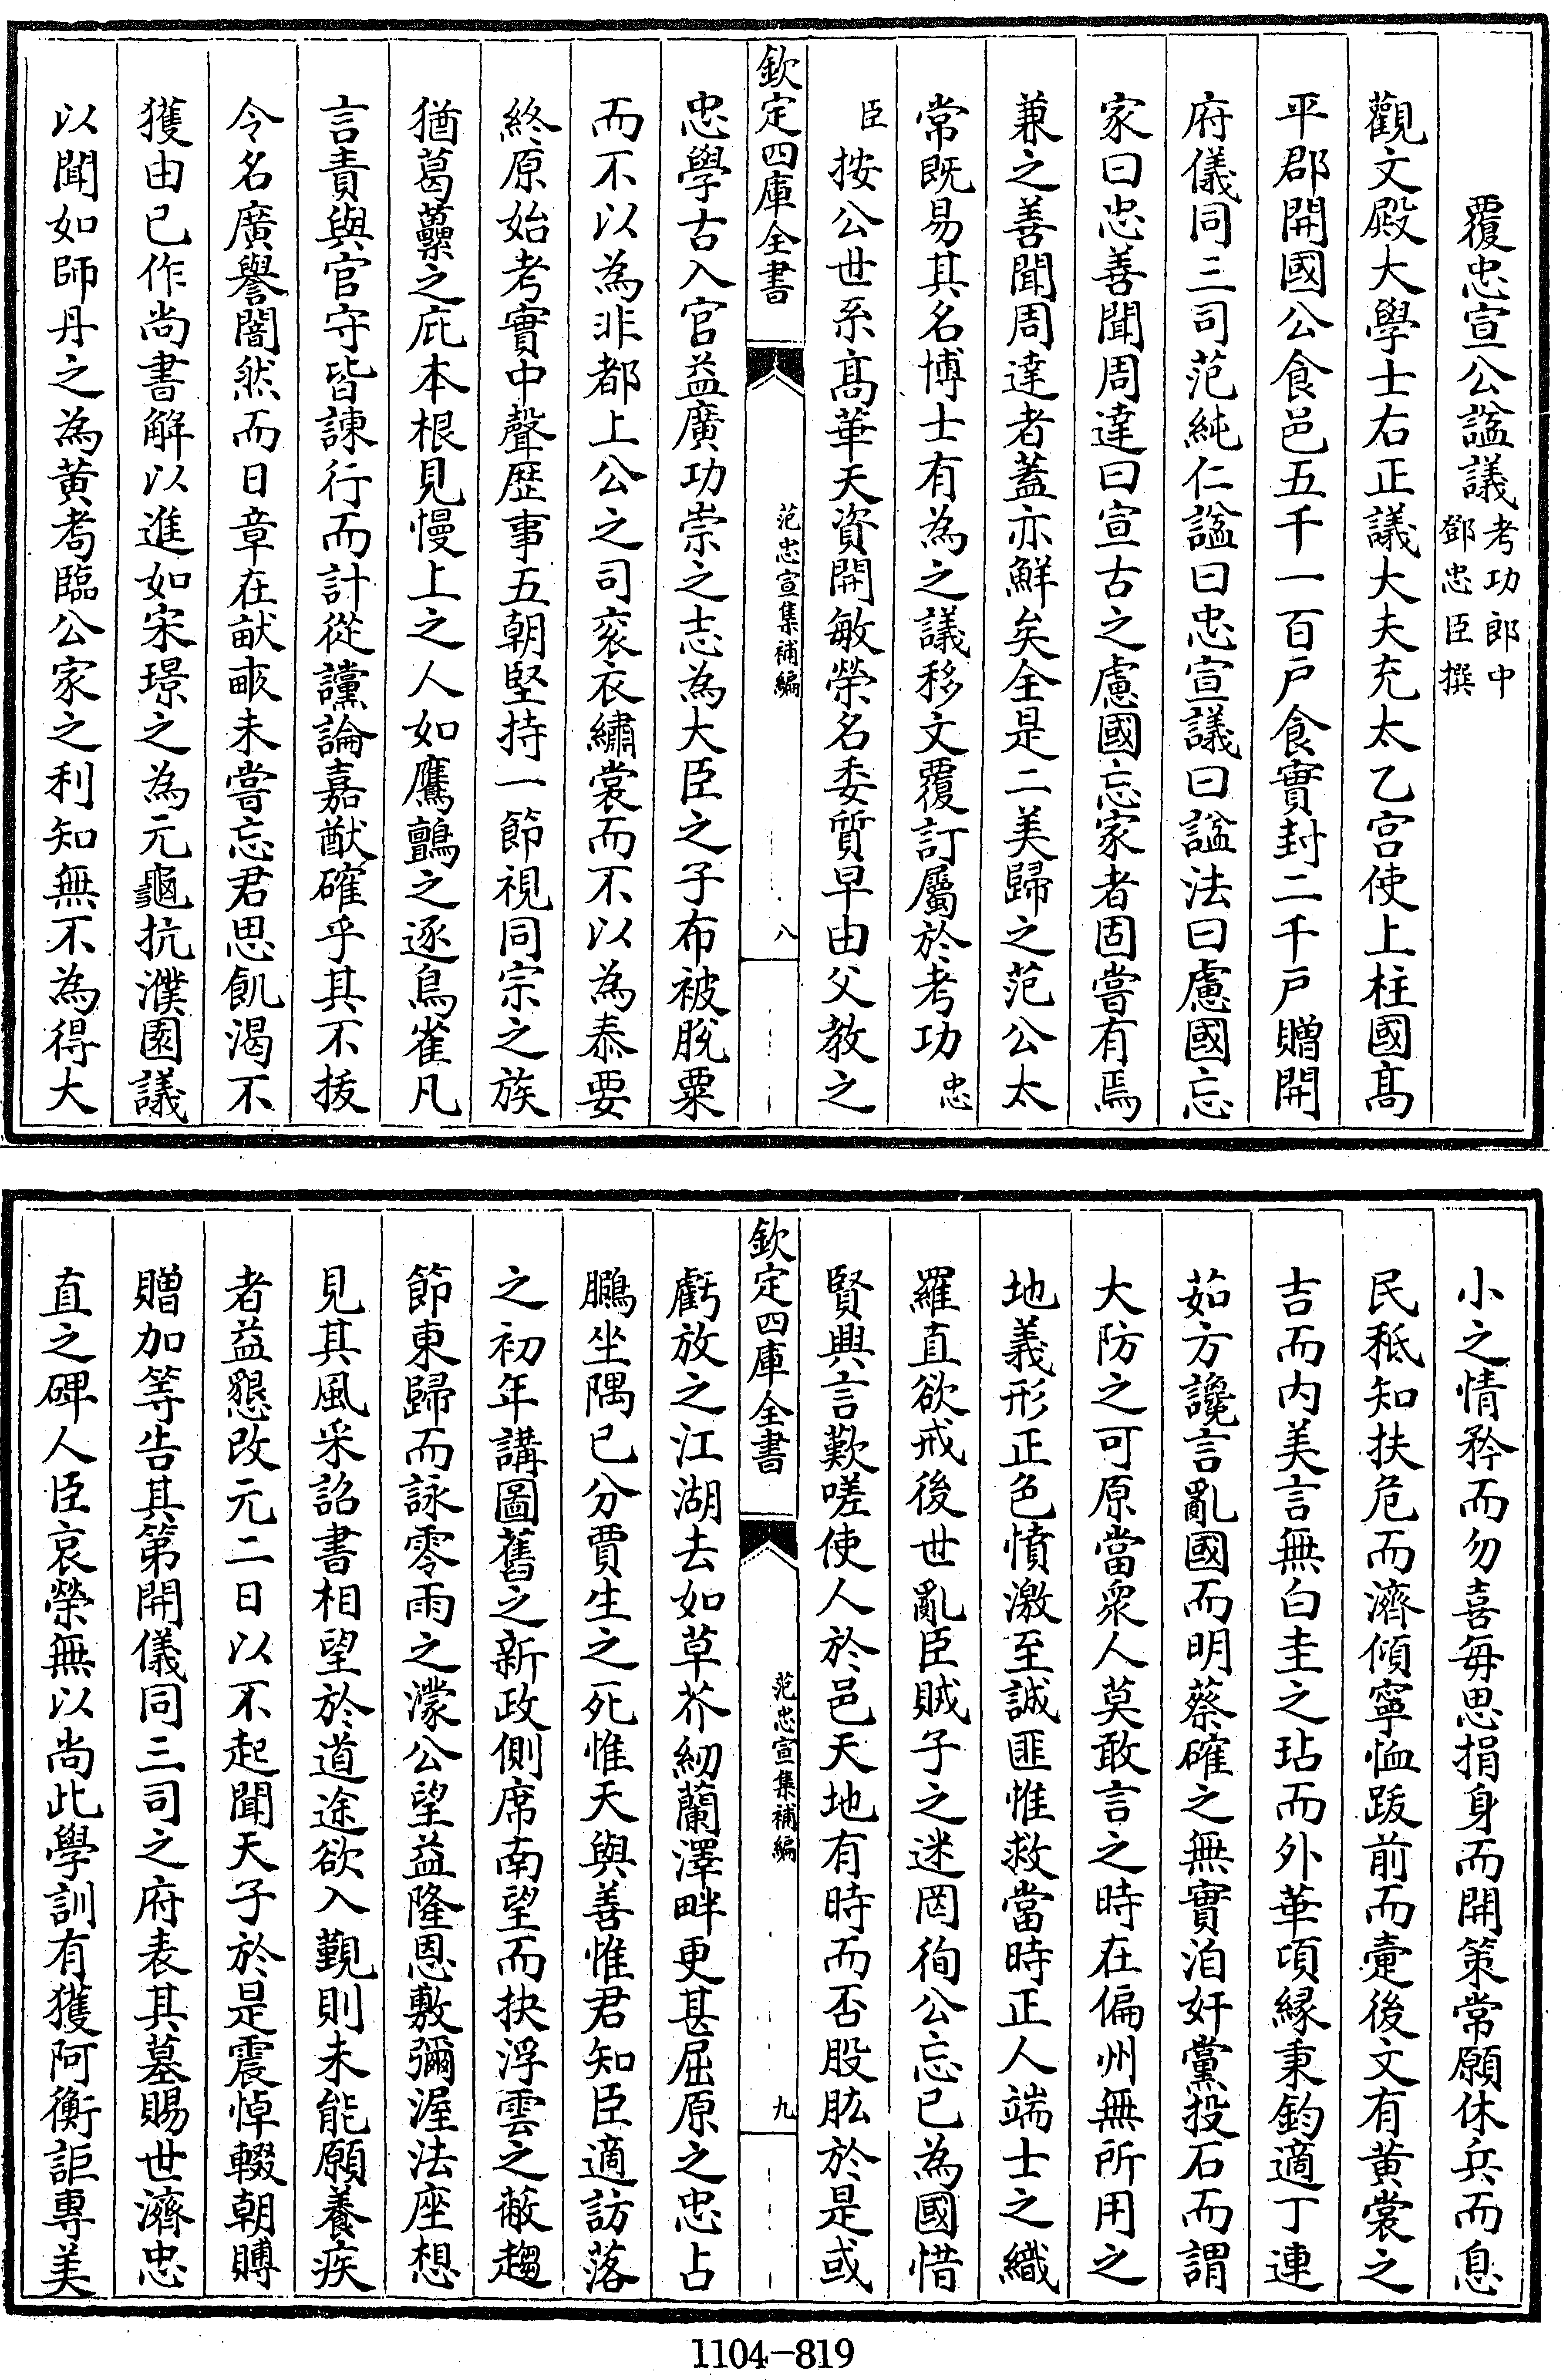 覆忠宣公諡議考功郎中鄧忠臣撰
觀文殿大學士右正議大夫充太乙宫使上柱國髙
平郡開國公食邑五千一百户食實封二千户贈開
府儀同三司范純仁諡曰忠宣議曰諡法曰慮國忘
家曰忠善聞周達曰宣古之慮國忘家者固嘗有焉
兼之善聞周達者蓋亦鮮矣全是二美歸之范公太
常既易其名博士有為之議移文覆訂屬於考功忠
臣按公世系髙華天資開敏榮名委質早由父教之
欽定四庫全書
范忠宣集補編
八
忠學古入官益廣功崇之志為大臣之子布被脫粟
而不以為非都上公之司衮衣繡裳而不以為泰要
終原始考實中聲歴事五朝堅持一節視同宗之族
猶葛藟之庇本根見慢上之人如鷹鸇之逐鳥雀凡
言責與官守皆諫行而計從讜論嘉猷確乎其不拔
令名廣譽闇然而日章在畎畞未嘗忘君思飢渴不
獲由已作尚書解以進如宋璟之為元龜抗濮園議
以聞如師丹之為黄耉臨公家之利知無不為得大
小之情矜而勿喜毎思捐身而開策常願休兵而息
民秪知扶危而濟傾寧恤跋前而疐後文有黄裳之
吉而内美言無白圭之玷而外華頃縁秉鈞適丁連
茹方讒言亂國而明蔡確之無實洎奸黨投石而謂
大防之可原當衆人莫敢言之時在偏州無所用之
地義形正色憤激至誠匪惟救當時正人端士之織
羅直欲戒後世亂臣賊子之迷罔徇公忘已為國惜
賢興言歎嗟使人於邑天地有時而否股肱於是或
欽定四庫全書
范忠宣集補編
九
虧放之江湖去如草芥紉蘭澤畔更甚屈原之忠占
鵩坐隅已分賈生之死惟天與善惟君知臣適訪落
之初年講圖舊之新政側席南望而抉浮雲之蔽趨
節東歸而詠零雨之濛公望益隆恩敷彌渥法座想
見其風采詔書相望於道途欲入覲則未能願養疾
者益懇改元二日以不起聞天子於是震悼輟朝賻
贈加等告其第開儀同三司之府表其墓賜世濟忠
直之碑人臣哀榮無以尚此學訓有獲阿衡詎專美
1104-819